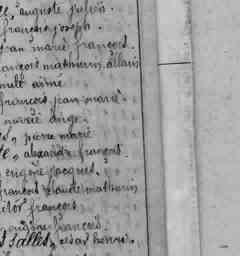 auguste julien.
françois joseph.
jean marie françois.
françois mathurin, allain
aimé
françois jean marie
marie ange
pierre marie
alexandre françois
eugène jacques.
françois claude mathurin
victor françois
eugène françois
Salles, césar henri.